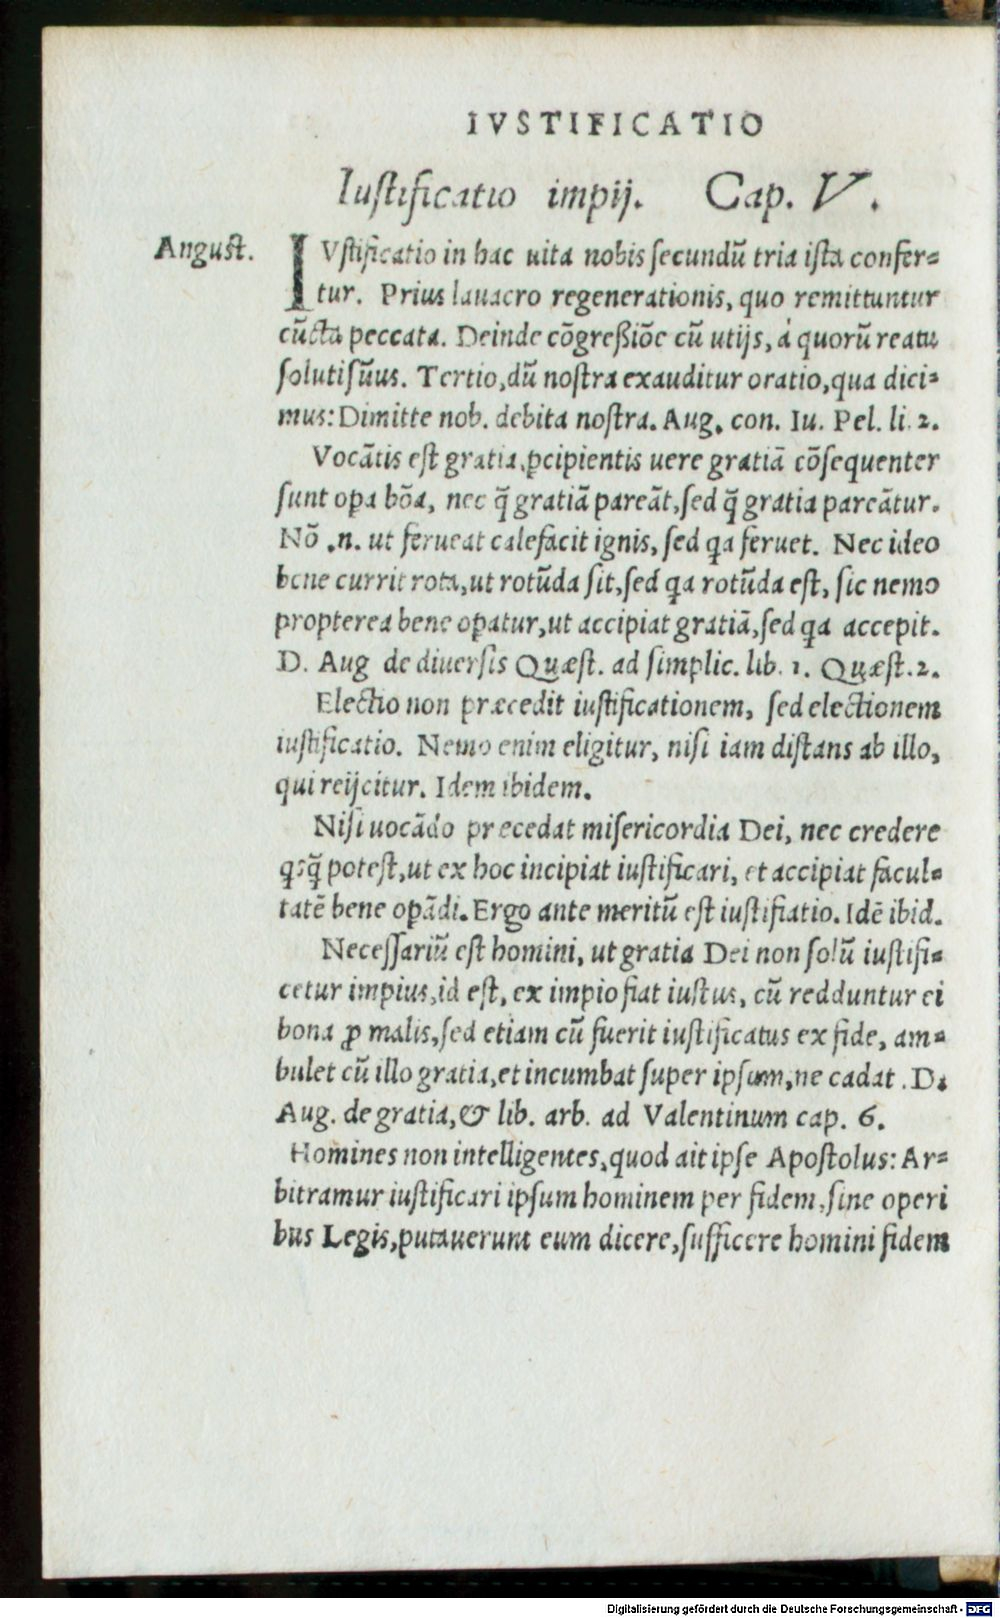 IVSTIFICATIO
Iuſtificatio impij. Cap. V.
Anguſt.
IVſtificatio in hac uita nobis ſecundū tria iſta confer=
tur. Prius lauacro regenerationis, quo remittuntur
cūcta peccata. Deinde cōgreßiōe cū utijs, á quorū reatu
ſoluti ſūus. Tertio, dū noſtra exauditur oratio, qua dici=
mus: Dimitte nob. debita noſtra. Aug. con. Iu. Pel. li. 2.
Vocātis eſt gratia, ꝑcipientis uere gratiā cōſequenter
ſunt oꝑa bōa, nec q̄ gratiā pareāt, ſed q̄ gratia pareātur.
Nō .n. ut ferueat calefacit ignis, ſed qa feruet. Nec ideo
bene currit rota, ut rotūda ſit, ſed qa rotūda eſt, ſic nemo
propterea bene oꝑatur, ut accipiat gratiā, ſed qa accepit.
D. Aug de diuerſis Quæſt. ad ſimplic. lib. 1. Quæſt. 2.
Electio non præcedit iuſtificationem, ſed electionem
iuſtificatio. Nemo enim eligitur, niſi iam diſtans ab illo,
qui reijcitur. Idem ibidem.
Niſi uocādo præcedat miſericordia Dei, nec credere
qſq̄ poteſt, ut ex hoc incipiat iuſtificari, et accipiat facul=
tatē bene oꝑādi. Ergo ante meritū eſt iuſtifiatio. Idē ibid.
Neceſſariū eſt homini, ut gratia Dei non ſolū iuſtifi=
cetur impius, id eſt, ex impio fiat iuſtus, cū redduntur ei
bona ꝓ malis, ſed etiam cū fuerit iuſtificatus ex fide, am=
bulet cū illo gratia, et incumbat ſuper ipſum, ne cadat. D.
Aug. de gratia, & lib. arb. ad Valentinum cap. 6.
Homines non intelligentes, quod ait ipſe Apoſtolus: Ar=
bitramur iuſtificari ipſum hominem per fidem, ſine operi
bus Legis, putauerunt eum dicere, ſufficere homini fidem
Digitalisierung gefördert durch die Deutsche Forschungsgemeinschaft - DFG